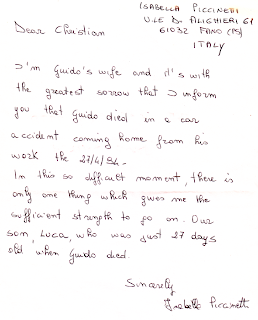 ISABELLA PICCINETTI
V.LE D. ALIGHIERI 61
61032 FANO (PS)
ITALY
Dear Christian
I'm Guido's wife and it's with
the greatest sorrow that I inform
you that Guido died in a car
accident coming home from his
work the 27/4/94-
In this so difficult moment, there is
only one thing which gives me the
sufficient strength to go on. Our
son, Luca, who was just 27 days
old when Guido died.
Sincerely
Isabella Piccinetti